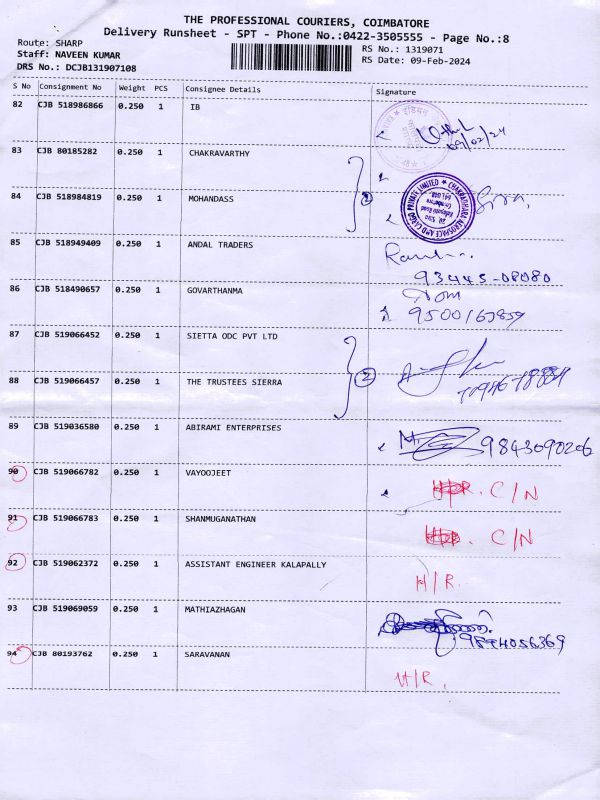 THE PROFESSIONAL COURIERS, COIMBATORE
Delivery Runsheet - SPT - Phone No.:0422-3505555 - Page No.:8
Route: SHARP
Staff: NAVEEN KUMAR
DRS No.: DCJB131907108
RS No.: 1319071
RS Date: 09-Feb-2024
S No Consignment No Weight PCS Consignee Details Signature
82 CJB 518986866 0.250 1 IB 09/02/24
83 CJB 80185282 0.250 1 CHAKRAVARTHY
84 CJB 518984819 0.250 1 MOHANDASS
CHAKRADHARA AEROSPACE AND CARGO PRIVATE LIMITED
85 CJB 518949409 0.250 1 ANDAL TRADERS
93445-08080
86 CJB 518490657 0.250 1 GOVARTHANMA
87 CJB 519066452 0.250 1 SIETTA ODC PVT LTD
2
88 CJB 519066457 0.250 1 THE TRUSTEES SIERRA
89 CJB 519036580 0.250 1 ABIRAMI ENTERPRISES 9843090206
90 CJB 519066782 0.250 1 VAYOOJEET C/N
91 CJB 519066783 0.250 1 SHANMUGANATHAN C/N
92 CJB 519062372 0.250 1 ASSISTANT ENGINEER KALAPALLY H/R.
93 CJB 519069059 0.250 1 MATHIAZHAGAN
9894056369
94 CJB 80193762 0.250 1 SARAVANAN H/R.